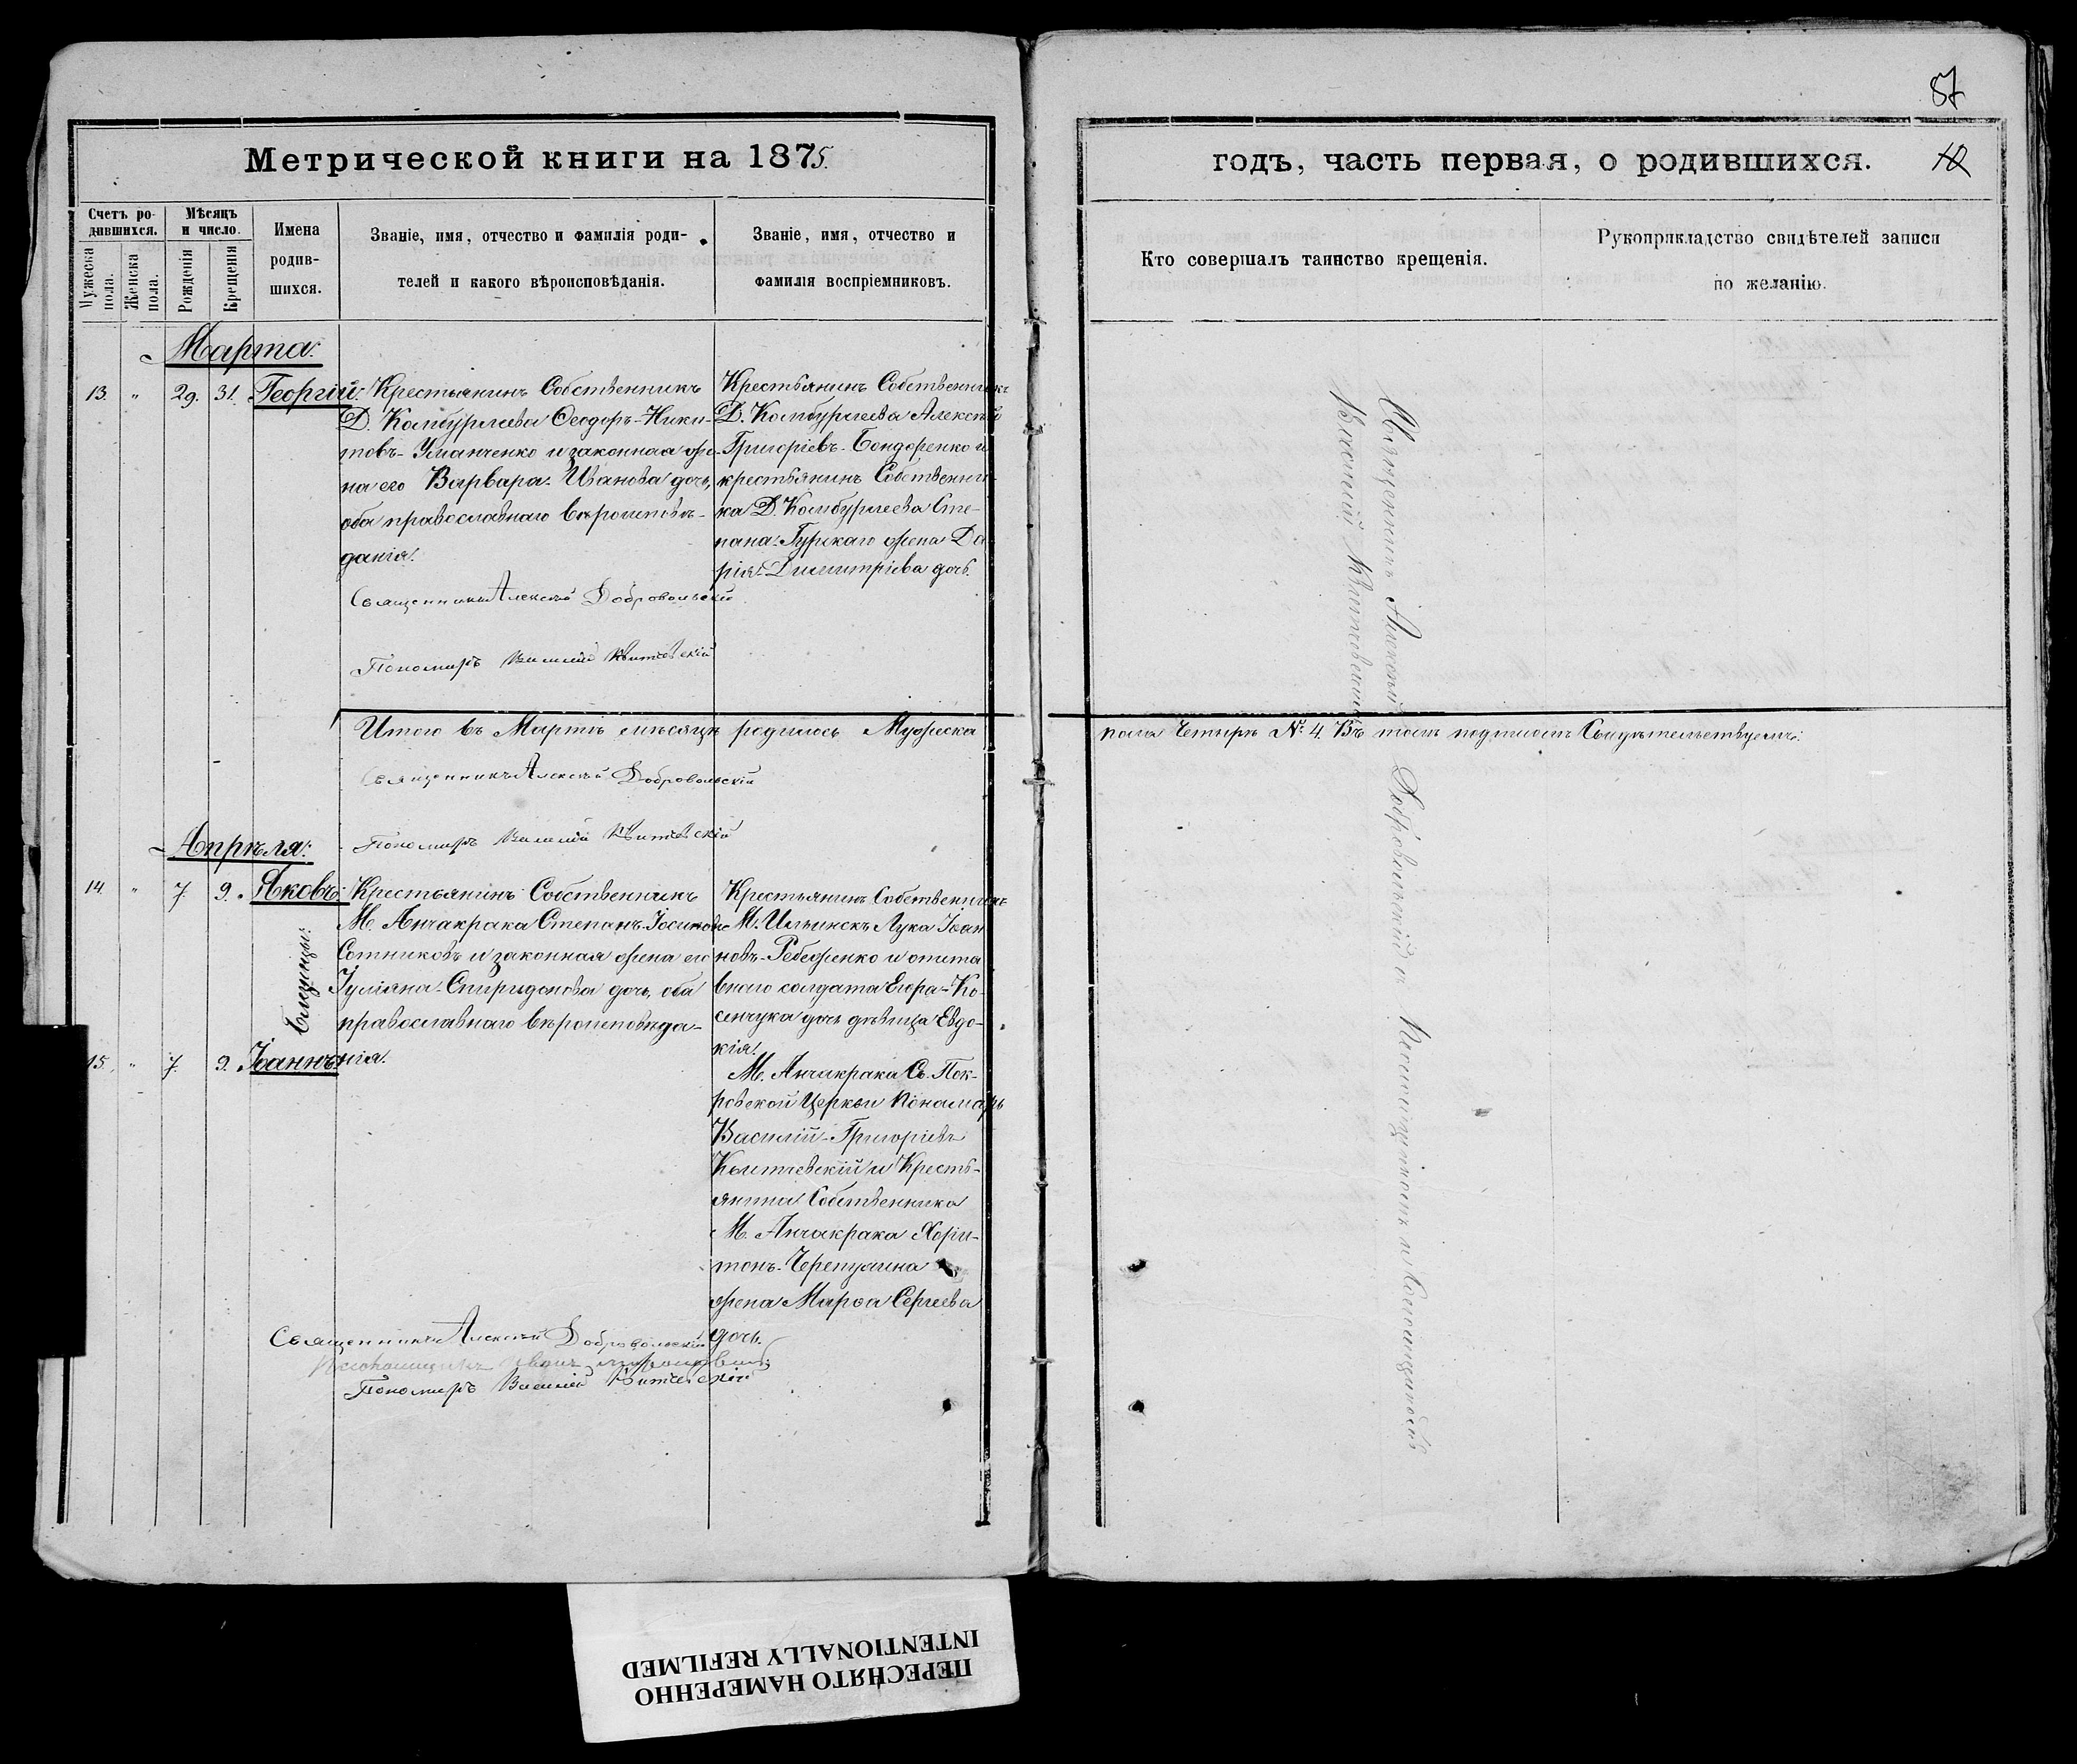 87
Метрической книги на 1875.
годъ, часть первая, о родившихся.
Счетъ ро-
дившихся.
Мужеска пола.
Женска пола.
Мѣсяцъ
и число.
Рожденія
Крещенія
Имена
родив-
шихся.
Званіе, имя, отчество и фамилія роди-
телей и какого вѣроисповѣданія.
Званіе, имя, отчество и
фамилія воспріемниковъ.
Кто совершалъ таинство крещенія.
Рукоприкладство свидѣтелей записи
по желанію.
Марта:
13. " 29. 31. Георгій:
Крестьянинъ Собственникъ
Д. Камбурлеева Ѳеодоръ-Ники-
товъ-Уманченко и законная же-
на его Варвара-Иванова дочь,
оба православнаго вѣроисповѣ-
данія.
Крестьянинъ Собственникъ
Д. Камбурлеева Алексѣй
Григоріевъ-Бондоренко и
крестьянинъ Собственни-
ка Д. Камбурлеева Сте-
пана-Гурскаго жена Да
рія-Димитріева дочь.
Священникъ Алексѣй Добровольскій
Пономарь Василій Квитчевскій
Итого въ Мартѣ мѣсяцѣ родилось Мужеска
пола Четыре № 4. Въ томъ подписомъ Свидѣтельствуемъ:
Священникъ Алексѣй Добровольскій
Пономарь Василій Квитчевскій
Апрѣля:
14. " 7. 9. Яковъ:
близнцы:
15. " 7. 9. Іоаннъ
Крестьянинъ Собственникъ
М. Анчакрака Степанъ-Іосиповъ
Сотниковъ и законная жена его
Іуліяна-Спиридонова дочь, оба
православнаго вѣроисповѣда-
нія.
Крестьянинъ Собственникъ
М. Ильинскъ Лука Іоан
новъ-Ребеженко и отста
внаго солдата Егора-Ко-
сенчука дочь дѣвица Евдо-
кія.
М. Анчакрака Св. Пок-
ровской Церкви Пономарь
Василій-Григоріевъ
Квитчевскій и Кресть-
янина Собственника
М. Анчакрака Хари-
тонъ-Черепушина
жена Марѳа Сергеева
дочь.
Священникъ Алексѣй Добровольскій
Псаломщикъ Иванъ
Пономарь Василій Квитчевскій
Священникъ Алексѣй Добровольскій и Псаломщикомъ
Василій Квитчевскій
ПЕРЕСНЯТО НАМЕРЕННО
INTENTIONALLY REFILMED